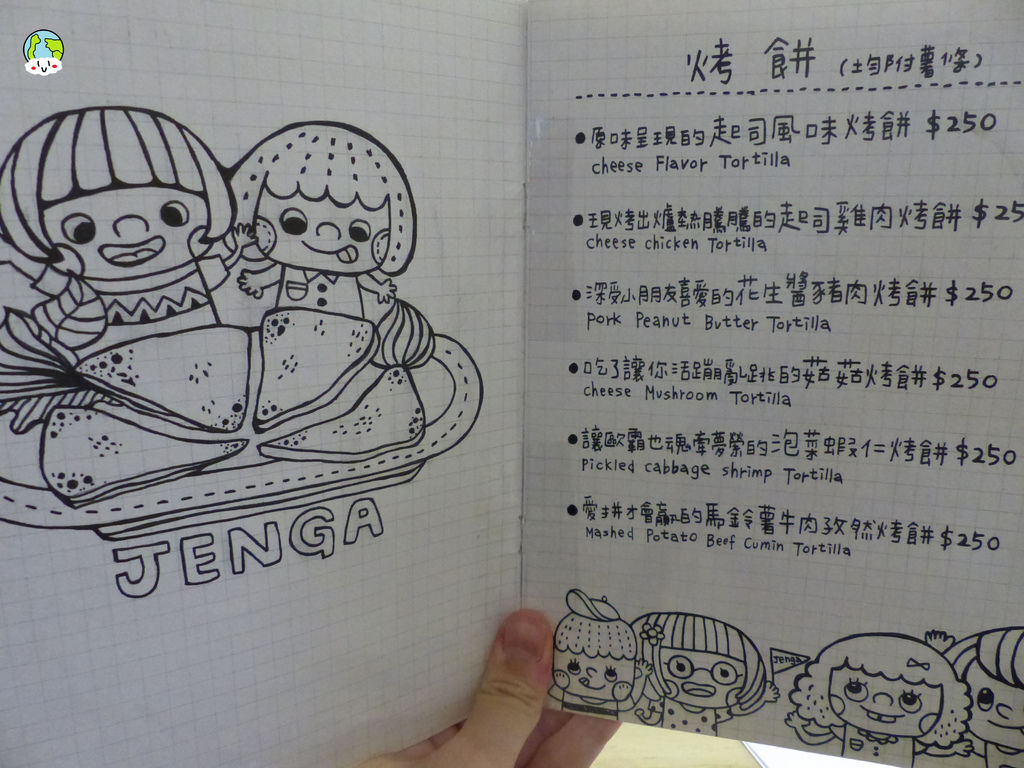 JENGA
烤餅 (均附薯條)
原味呈現的起司風味烤餅 $250
cheese Flavor Tortilla
現烤出爐熱騰騰的起司雞肉烤餅 $25
cheese chicken Tortilla
深受小朋友喜愛的花生醬豬肉烤餅 $250
Pork Peanut Butter Tortilla
吃了讓你活蹦亂跳的菇菇烤餅 $250
cheese Mushroom Tortilla
讓歐霸也魂牽夢縈的泡菜蝦仁烤餅 $250
Pickled cabbage shrimp Tortilla
愛拼才會贏的馬鈴薯牛肉孜然烤餅 $250
Mashed Potato Beef Cumin Tortilla
jenga